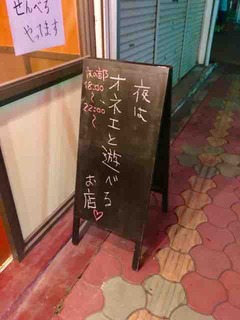 せんべろ
やってます
夜は
オネエと遊べる
お店♡
夜の部
18:00
～
22:00
～